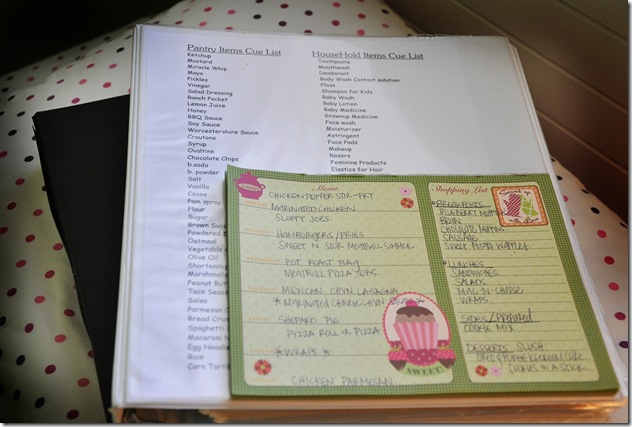 Pantry Items Cue List
Ketchup
Mustard
Miracle Whip
Mayo
Pickles
Vinegar
Salad Dressing
Ranch Packet
Lemon Juice
Honey
BBQ Sauce
Soy Sauce
Worcestershire Sauce
Croutons
Syrup
Ovaltine
Chocolate Chips
b.soda
b. powder
Salt
Vanilla
Cocoa
Pam spray
Flour
Sugar
Brown Suga
Powdered S
Oatmeal
Vegetable
Olive Oil
Shortening
Marshmal
Peanut But
Taco Seaso
Salsa
Parmesan C
Bread Crum
Spaghetti
Macaroni N
Egg Noodle
Rice
Corn Torti
HouseHold Items Cue List
Toothpaste
Mouthwash
Deodorant
Body Wash Contact solution
Floss
Shampoo for Kids
Baby Wash
Baby Lotion
Baby Medicine
Grownup Medicine
Face wash
Moisturizer
Astringent
Face Pads
Makeup
Razors
Feminine Products
Elastics for Hair
Menu
CHICKEN PEPPER STIR-FRY
MARINATED CHICKEN
SLOPPY JOES
HAMBURGERS/FRIES
SWEET N SOUR MEATBALL
POT ROAST BAG
MEATBALL PIZZA SUBS
MEXICAN CHKN LASAGNA
*MARINATED CHKN
SHEPARD PIE
PIZZA ROLL OR PIZZA
*WRAPS*
CHICKEN PARMESAN
SWEET!
Shopping List
*BREAKFASTS
BLUEBERRY MUFFINS
CHOCOLATE MUFFINS
SAUSAGE
SWEET POTATO WAFFLES
*LUNCHES
SANDWICHES
SALADS
MAC-N-CHEESE
WRAPS
SIDES/PREPARED
COOKIE MIX
DESSERTS SLUSH
OREO FUDGE ICECREAM CAKE
COOKIES ON A STICK